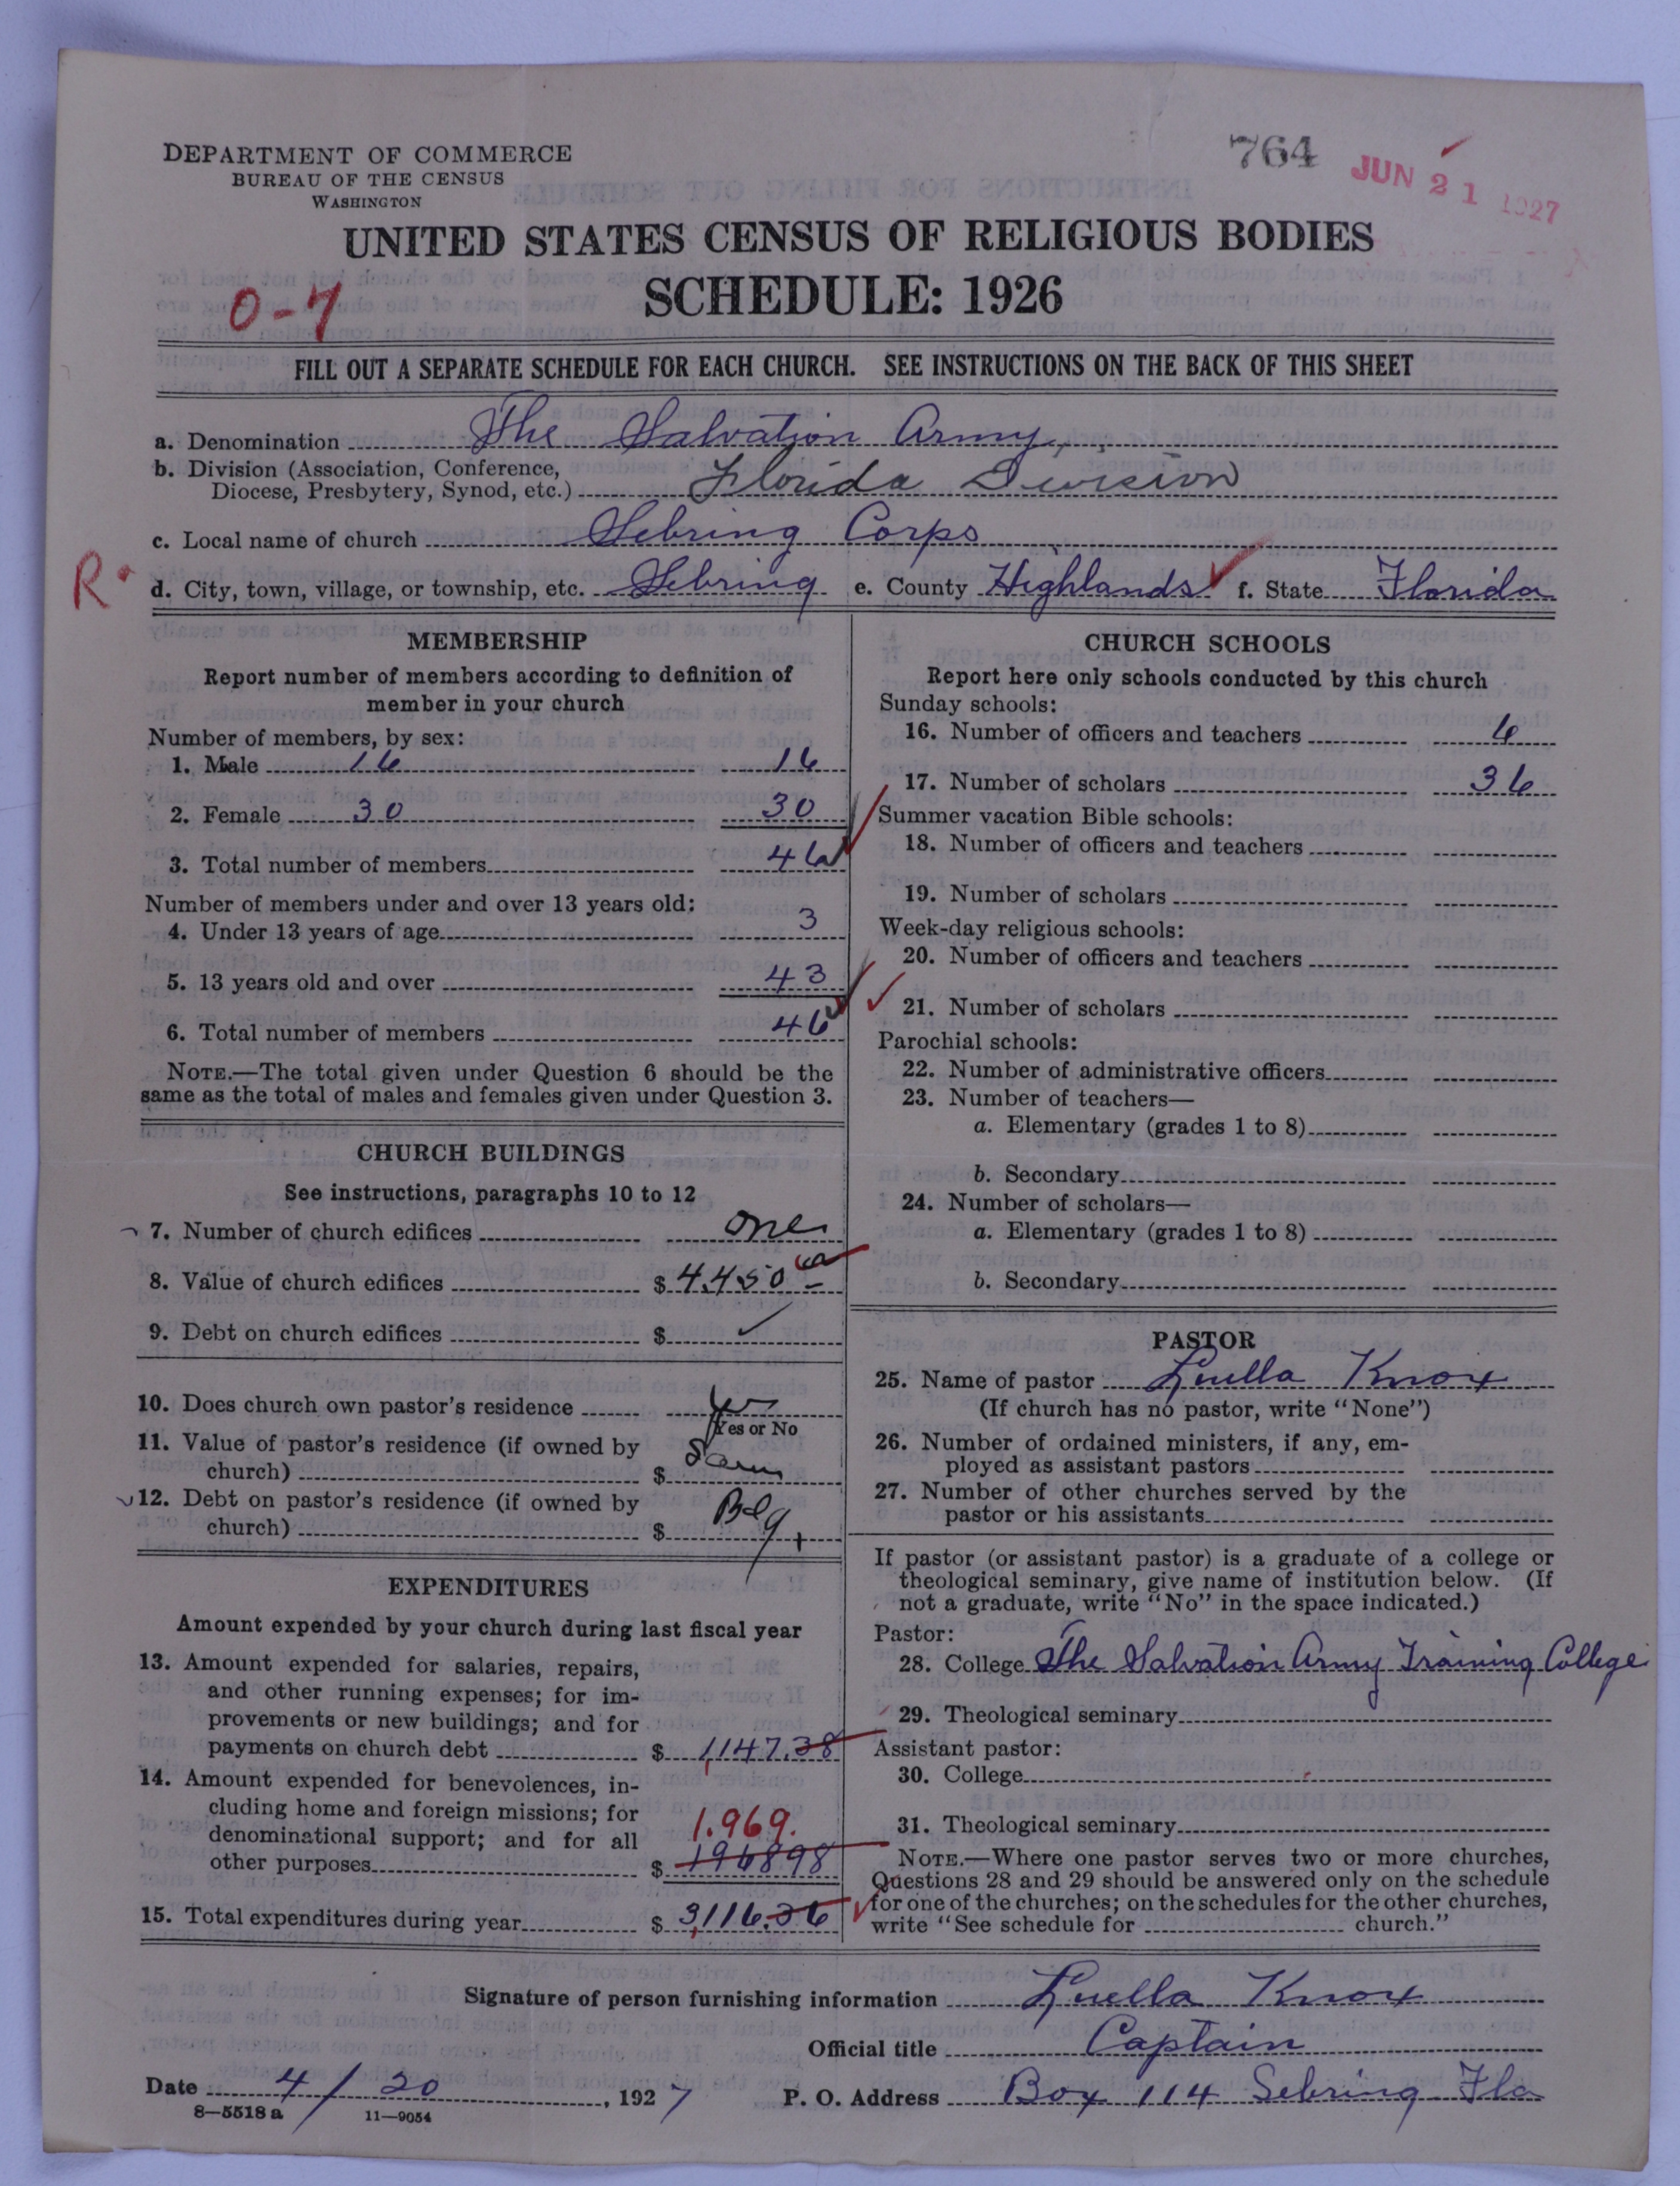 DEPARTMENT OF COMMERCE
BUREAU OF THE CENSUS
WASHINGTON
764
JUN 21 1927
UNITED STATES CENSUS OF RELIGIOUS BODIES
SCHEDULE: 1926
0-7
FILL OUT A SEPARATE SCHEDULE FOR EACH CHURCH. SEE INSTRUCTIONS ON THE BACK OF THIS SHEET
a. Denomination The Salvation Army
b. Division (Association, Conference,
Diocese, Presbytery, Synod, etc.) Florida Division
c. Local name of church Sebring Corps
R.
d. City, town, village, or township, etc. Sebring e. County Highlands f. State Florida
MEMBERSHIP
Report number of members according to definition of
member in your church
Number of members, by sex:
1. Male 16 16
2. Female 30 30
3. Total number of members 46
Number of members under and over 13 years old:
4. Under 13 years of age 3
5. 13 years old and over 43
6. Total number of members 46
NOTE.—The total given under Question 6 should be the
same as the total of males and females given under Question 3.
CHURCH BUILDINGS
See instructions, paragraphs 10 to 12
7. Number of church edifices one
8. Value of church edifices $ 4,450
9. Debt on church edifices $ ✓
10. Does church own pastor's residence yes
Yes or No
11. Value of pastor's residence (if owned by
church) $ Same
12. Debt on pastor's residence (if owned by
church) $ Bdg.
EXPENDITURES
Amount expended by your church during last fiscal year
13. Amount expended for salaries, repairs,
and other running expenses; for im-
provements or new buildings; and for
payments on church debt $ 1,147.38
14. Amount expended for benevolences, in-
cluding home and foreign missions; for
denominational support; and for all
1.969.
other purposes $ 196898
15. Total expenditures during year $ 3,116.36
CHURCH SCHOOLS
Report here only schools conducted by this church
Sunday schools:
16. Number of officers and teachers 6
17. Number of scholars 36
Summer vacation Bible schools:
18. Number of officers and teachers
19. Number of scholars
Week-day religious schools:
20. Number of officers and teachers
21. Number of scholars
Parochial schools:
22. Number of administrative officers
23. Number of teachers—
a. Elementary (grades 1 to 8)
b. Secondary
24. Number of scholars—
a. Elementary (grades 1 to 8)
b. Secondary
PASTOR
25. Name of pastor Luella Knox
(If church has no pastor, write "None")
26. Number of ordained ministers, if any, em-
ployed as assistant pastors
27. Number of other churches served by the
pastor or his assistants
If pastor (or assistant pastor) is a graduate of a college or
theological seminary, give name of institution below. (If
not a graduate, write "No" in the space indicated.)
Pastor:
28. College The Salvation Army Training College
29. Theological seminary
Assistant pastor:
30. College
31. Theological seminary
NOTE.—Where one pastor serves two or more churches,
Questions 28 and 29 should be answered only on the schedule
for one of the churches; on the schedules for the other churches,
write "See schedule for church."
Signature of person furnishing information Luella Knox
Official title Captain
Date 4/20, 1927 P. O. Address Box 114 Sebring Fla
8—5518 a 11—9054